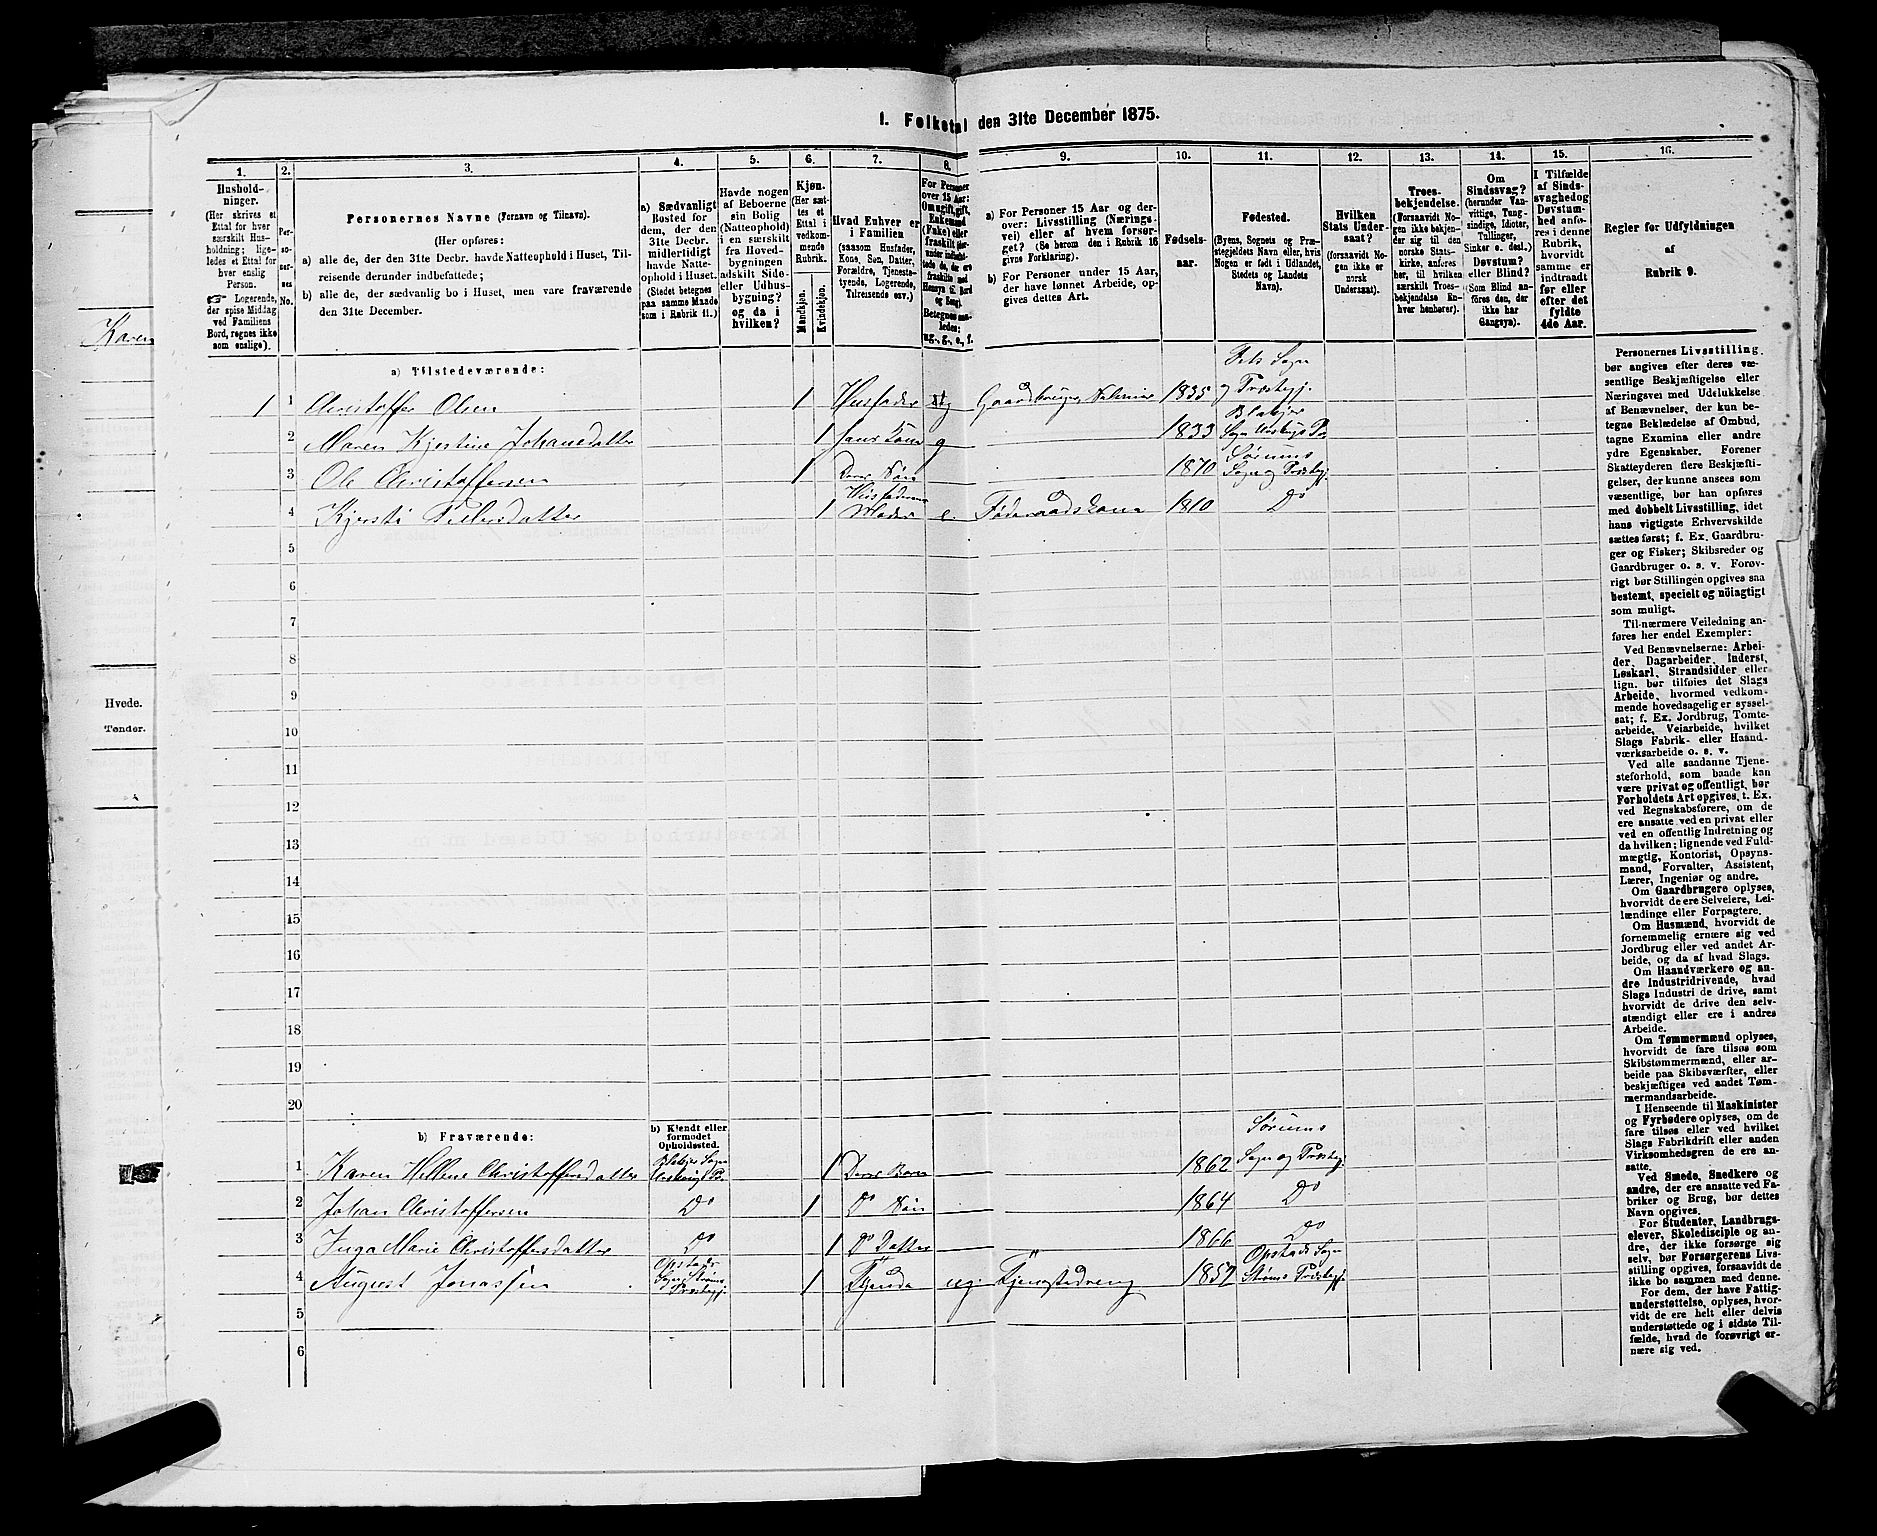 1. Folketal den 31te December 1875.
1. 2. 3. 4. 5. 6. 7. 8. 9. 10. 11. 12. 13. 14. 15. 16.
Hushold-
ninger.
(Her skrives et
Ettal for hver
særskilt Hus-
holdning; lige-
ledes et Ettal for
hver enslig
Person.
☞ Logerende,
der spise Middag
ved Familiens
Bord, regnes ikke
som enslige).
Per-
so-
ner-
nes
No.
Personernes Navne (Fornavn og Tilnavn).
(Her opføres:
a) alle de, der den 31te Decbr. havde Natteophold i Huset, Til-
reisende derunder indbefattede;
b) alle de, der sædvanlig bo i Huset, men vare fraværende
den 31te December.
a) Sædvanligt
Bosted for
dem, der den
31te Decbr.
midlertidigt
havde Natte-
ophold i Huset.
(Stedet betegnes
paa samme Maade
som i Rubrik 11.)
Havde nogen
af Beboerne
sin Bolig
(Natteophold)
i en særskilt
fra Hoved-
bygningen
adskilt Side-
eller Udhus-
bygning?
og da i
hvilken?
Kjøn.
(Her sæt-
tes et
Ettal i
vedkom-
mende
Rubrik.
Mandkjøn.
Kvindekjøn.
Hvad Enhver er
i Familien
(saasom Husfader,
Kone, Søn, Datter,
Forældre, Tjeneste-
tyende, Logerende,
Tilreisende osv.)
For Personer
over 15 Aar:
Om ugift, gift,
Enkemand
(Enke) eller
fraskilt
Betegnes saa-
ledes:
ug., g., e., f.
a) For Personer 15 Aar og der-
over: Livsstilling (Nærings-
vei) eller af hvem forsør-
get? (Se herom den i Rubrik 16
givne Forklaring).
b) For Personer under 15 Aar,
der have lønnet Arbeide, op-
gives dettes Art.
Fødsels-
aar.
Fødested.
(Byens, Sognets og Præ-
stegjeldets Navn eller, hvis
Nogen er født i Udlandet,
Stedets og Landets
Navn).
Hvilken
Stats Under-
saat?
(forsaavidt No-
gen ikke er
norsk
Undersaat).
Troes-
bekjendelse.
(Forsaavidt No-
gen ikke bekjen-
der sig til den
norske Stats-
kirke, anføres
her, til hvilken
særskilt Troes-
bekjendelse En-
hver henhører).
Om
Sindssvag?
(herunder Van-
vittige, Tung-
sindige, Idioter,
Tullinger,
Sinker o. desl.)
Døvstum?
eller Blind?
(Som Blind an-
føres den, der
ikke har
Gangsyn).
I Tilfælde
af Sinds-
svaghed og
Døvstum-
hed anfø-
res i denne
Rubrik,
hvorvidt
samme er
indtraadt
før eller
efter det
fyldte
4de Aar.
Regler for Udfyldningen
af
Rubrik 9.
a) Tilstedeværende:
1 1 Christoffer Olsen 1 Husfader g Gaardbruger, Selveier 1835 Fets Sogn og Præstegj.
2 Maren Kjerstine Johansdatter 1 hans Kone g 1833 Blakjer Sogn Urskougs Pr.
3 Ole Christoffersen 1 Deres Søn 1870 Sørums Sogn og Præstegj.
4 Kjersti Pedersdatter 1 Husfaderens Moder e. Føderaadskone 1810 Do
5
6
7
8
9
10
11
12
13
14
15
16
17
18
19
20
b) Fraværende:
b) Kjendt eller
formodet
Opholdssted.
1 Karen Hellene Christoffersdatter Blakjer Sogn Urskougs Pr. 1 Deres Barn 1862 Sørums Sogn og Præstegj.
2 Johan Christoffersen Do 1 Do Søn 1864 Do
3 Inga Marie Christoffersdatter Do 1 Do Datter 1866 Do
4 August Jonassen Opstads Sogn Strøms Præstegj. 1 Tjenende ug. Tjenestedreng 1857 Opstads Sogn Strøms Præstegj.
5
6
Personernes Livsstilling
bør angives efter deres væ-
sentlige Beskjæftigelse eller
Næringsvei med Udelukkelse
af Benævnelser, der kun be-
tegne Beklædelse af Ombud,
tagne Examina eller andre
ydre Egenskaber. Forener
Skatteyderen flere Beskjæfti-
gelser, der kunne ansees som
væsentlige, bør han opføres
med dobbelt Livsstilling, idet
hans vigtigste Erhvervskilde
sættes først; f. Ex. Gaardbru-
ger og Fisker; Skibsreder og
Gaardbruger o. s. v. Forøv-
rigt bør Stillingen opgives saa
bestemt, specielt og nöiagtigt
som muligt.
Til nærmere Veiledning an-
føres her endel Exempler:
Ved Benævnelserne: Arbei-
der, Dagarbeider, Inderst,
Løskarl, Strandsidder eller
lign. bør tilføies det Slags
Arbeide, hvormed vedkom-
mende hovedsagelig er syssel-
sat; f. Ex. Jordbrug, Tomte-
arbeide, Veiarbeide, hvilket
Slags Fabrik- eller Haand-
værksarbeide o. s. v.
Ved alle saadanne Tjene-
steforhold, som baade kan
være privat og offentligt, bør
Forholdets Art opgives, t. Ex.
ved Regnskabsførere, om de
ere ansatte ved en privat eller
ved en offentlig Indretning og
da hvilken; lignende ved Fuld-
mægtig, Kontorist, Opsyns-
mand, Forvalter, Assistent,
Lærer, Ingeniør og andre.
Om Gaardbrugere oplyses,
hvorvidt de ere Selveiere, Lei-
lændinge eller Forpagtere.
Om Husmænd, hvorvidt de
fornemmelig ernære sig ved
Jordbrug eller ved andet Ar-
beide, og da af hvad Slags.
Om Haandværkere og an-
dre Industridrivende, hvad
Slags Industri de drive, samt
hvorvidt de drive den selv-
stændigt eller ere i andres
Arbeide.
Om Tømmermænd oplyses,
hvorvidt de fare tilsøs som
Skibstømmermænd, eller ar-
beide paa Skibsværfter, eller
beskjæftiges ved andet Tøm-
mermandsarbeide.
I Henseende til Maskinister
og Fyrbødere oplyses, om de
fare tilsøs eller ved hvilket
Slags Fabrikdrift eller anden
Virksomhedsgren de ere an-
satte.
Ved Smede, Snedkere og
andre, der ere ansatte ved Fa-
briker og Brug, bør dettes
Navn opgives.
For Studenter, Landbrugs-
elever, Skoledisciple og an-
dre, der ikke forsørge sig
selv, bør Forsørgerens Livs-
stilling opgives, forsaavidt de
ikke bo sammen med denne.
For dem, der have Fattig-
understøttelse, oplyses, hvor-
vidt de ere helt eller delvis
understøttede og i sidste Til-
fælde, hvad de forøvrigt er-
nære sig ved.
Karen
Hvede.
Tønder.